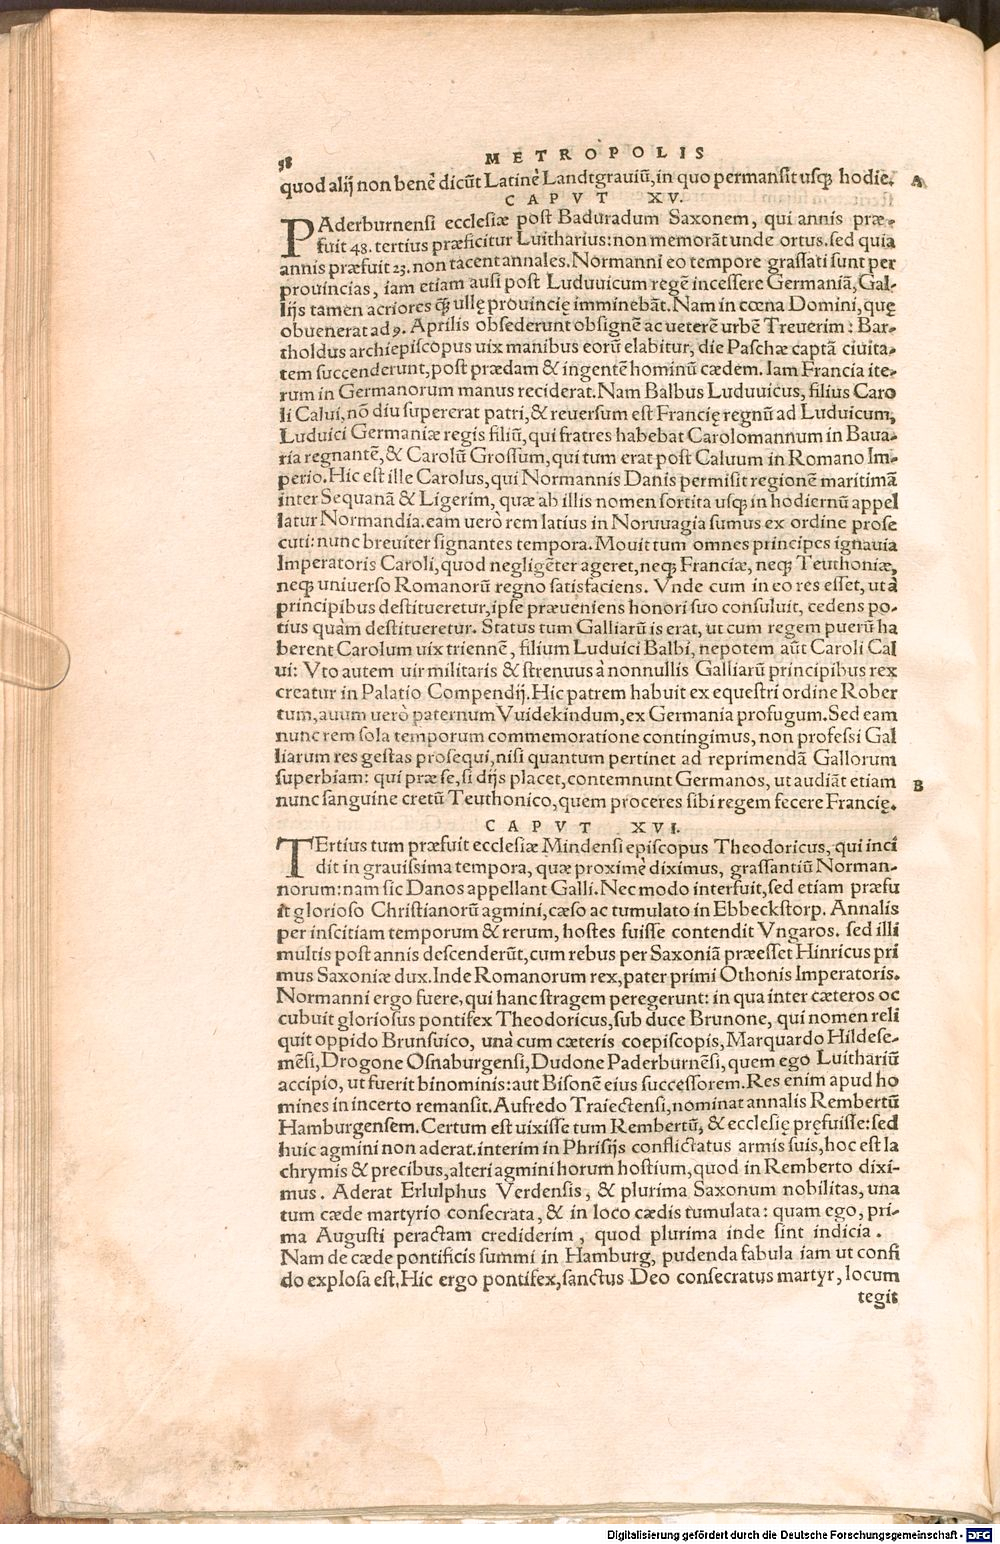 58
METROPOLIS
quod alij non benè dicũt Latinè Landtgrauiũ, in quo permansit usq; hodie.
A
CAPVT XV.
PAderburnensi ecclesiæ post Baduradum Saxonem, qui annis præ-
fuit 48. tertius præficitur Luitharius: non memorãt unde ortus. sed quia
annis præfuit 23. non tacent annales. Normanni eo tempore grassati sunt per
prouincias, iam etiam ausi post Luduuicum regẽ incessere Germaniã, Gal-
lijs tamen acriores q̃ ullę prouincię imminebãt. Nam in cœna Domini, quę
obuenerat ad 9. Aprilis obsederunt obsignẽ ac ueterẽ urbẽ Treuerim: Bar-
tholdus archiepiscopus uix manibus eorũ elabitur, die Paschæ captã ciuita-
tem succenderunt, post prædam & ingentẽ hominũ cædem. Iam Francia ite-
rum in Germanorum manus reciderat. Nam Balbus Luduuicus, filius Caro
li Calui, nõ diu supererat patri, & reuersum est Francię regnũ ad Luduicum,
Luduici Germaniæ regis filiũ, qui fratres habebat Carolomannum in Baua-
ria regnantẽ, & Carolũ Grossum, qui tum erat post Caluum in Romano Im-
perio. Hic est ille Carolus, qui Normannis Danis permisit regionẽ maritimã
inter Sequanã & Ligerim, quæ ab illis nomen sortita usq; in hodiernũ appel
latur Normandia. eam uerò rem latius in Noruuagia sumus ex ordine prose
cuti: nunc breuiter signantes tempora. Mouit tum omnes principes ignauia
Imperatoris Caroli, quod negligẽter ageret, neq; Franciæ, neq; Teuthoniæ,
neq; uniuerso Romanorũ regno satisfaciens. Vnde cum in eo res esset, ut à
principibus destitueretur, ipse præueniens honori suo consuluit, cedens po-
tius quàm destitueretur. Status tum Galliarũ is erat, ut cum regem puerũ ha
berent Carolum uix triennẽ, filium Luduici Balbi, nepotem aũt Caroli Cal
ui: Vto autem uir militaris & strenuus à nonnullis Galliarũ principibus rex
creatur in Palatio Compendij. Hic patrem habuit ex equestri ordine Rober
tum, auum uerò paternum Vuidekindum, ex Germania profugum. Sed eam
nunc rem sola temporum commemoratione contingimus, non professi Gal
liarum res gestas prosequi, nisi quantum pertinet ad reprimendã Gallorum
superbiam: qui præ se, si dijs placet, contemnunt Germanos, ut audiãt etiam
B
nunc sanguine cretũ Teuthonico, quem proceres sibi regem fecere Francię.
CAPVT XVI.
TErtius tum præfuit ecclesiæ Mindensi episcopus Theodoricus, qui inci
dit in grauissima tempora, quæ proximè diximus, grassantiũ Norman-
norum: nam sic Danos appellant Galli. Nec modo interfuit, sed etiam præfu
it glorioso Christianorũ agmini, cæso ac tumulato in Ebbeckstorp. Annalis
per inscitiam temporum & rerum, hostes fuisse contendit Vngaros. sed illi
multis post annis descenderũt, cum rebus per Saxoniã præesset Hinricus pri
mus Saxoniæ dux. Inde Romanorum rex, pater primi Othonis Imperatoris.
Normanni ergo fuere, qui hanc stragem peregerunt: in qua inter cæteros oc
cubuit gloriosus pontifex Theodoricus, sub duce Brunone, qui nomen reli
quit oppido Brunsuico, unà cum cæteris coepiscopis, Marquardo Hildese-
mẽsi, Drogone Osnaburgensi, Dudone Paderburnẽsi, quem ego Luithariũ
accipio, ut fuerit binominis: aut Bisonẽ eius successorem. Res enim apud ho
mines in incerto remansit. Aufredo Traiectensi, nominat annalis Rembertũ
Hamburgensem. Certum est uixisse tum Rembertũ, & ecclesię pręfuisse: sed
huic agmini non aderat. interim in Phrisijs conflictatus armis suis, hoc est la
chrymis & precibus, alteri agmini horum hostium, quod in Remberto dixi-
mus. Aderat Erlulphus Verdensis, & plurima Saxonum nobilitas, una
tum cæde martyrio consecrata, & in loco cædis tumulata: quam ego, pri-
ma Augusti peractam crediderim, quod plurima inde sint indicia.
Nam de cæde pontificis summi in Hamburg, pudenda fabula iam ut confi
do explosa est. Hic ergo pontifex, sanctus Deo consecratus martyr, locum
tegit
Digitalisierung gefördert durch die Deutsche Forschungsgemeinschaft - DFG